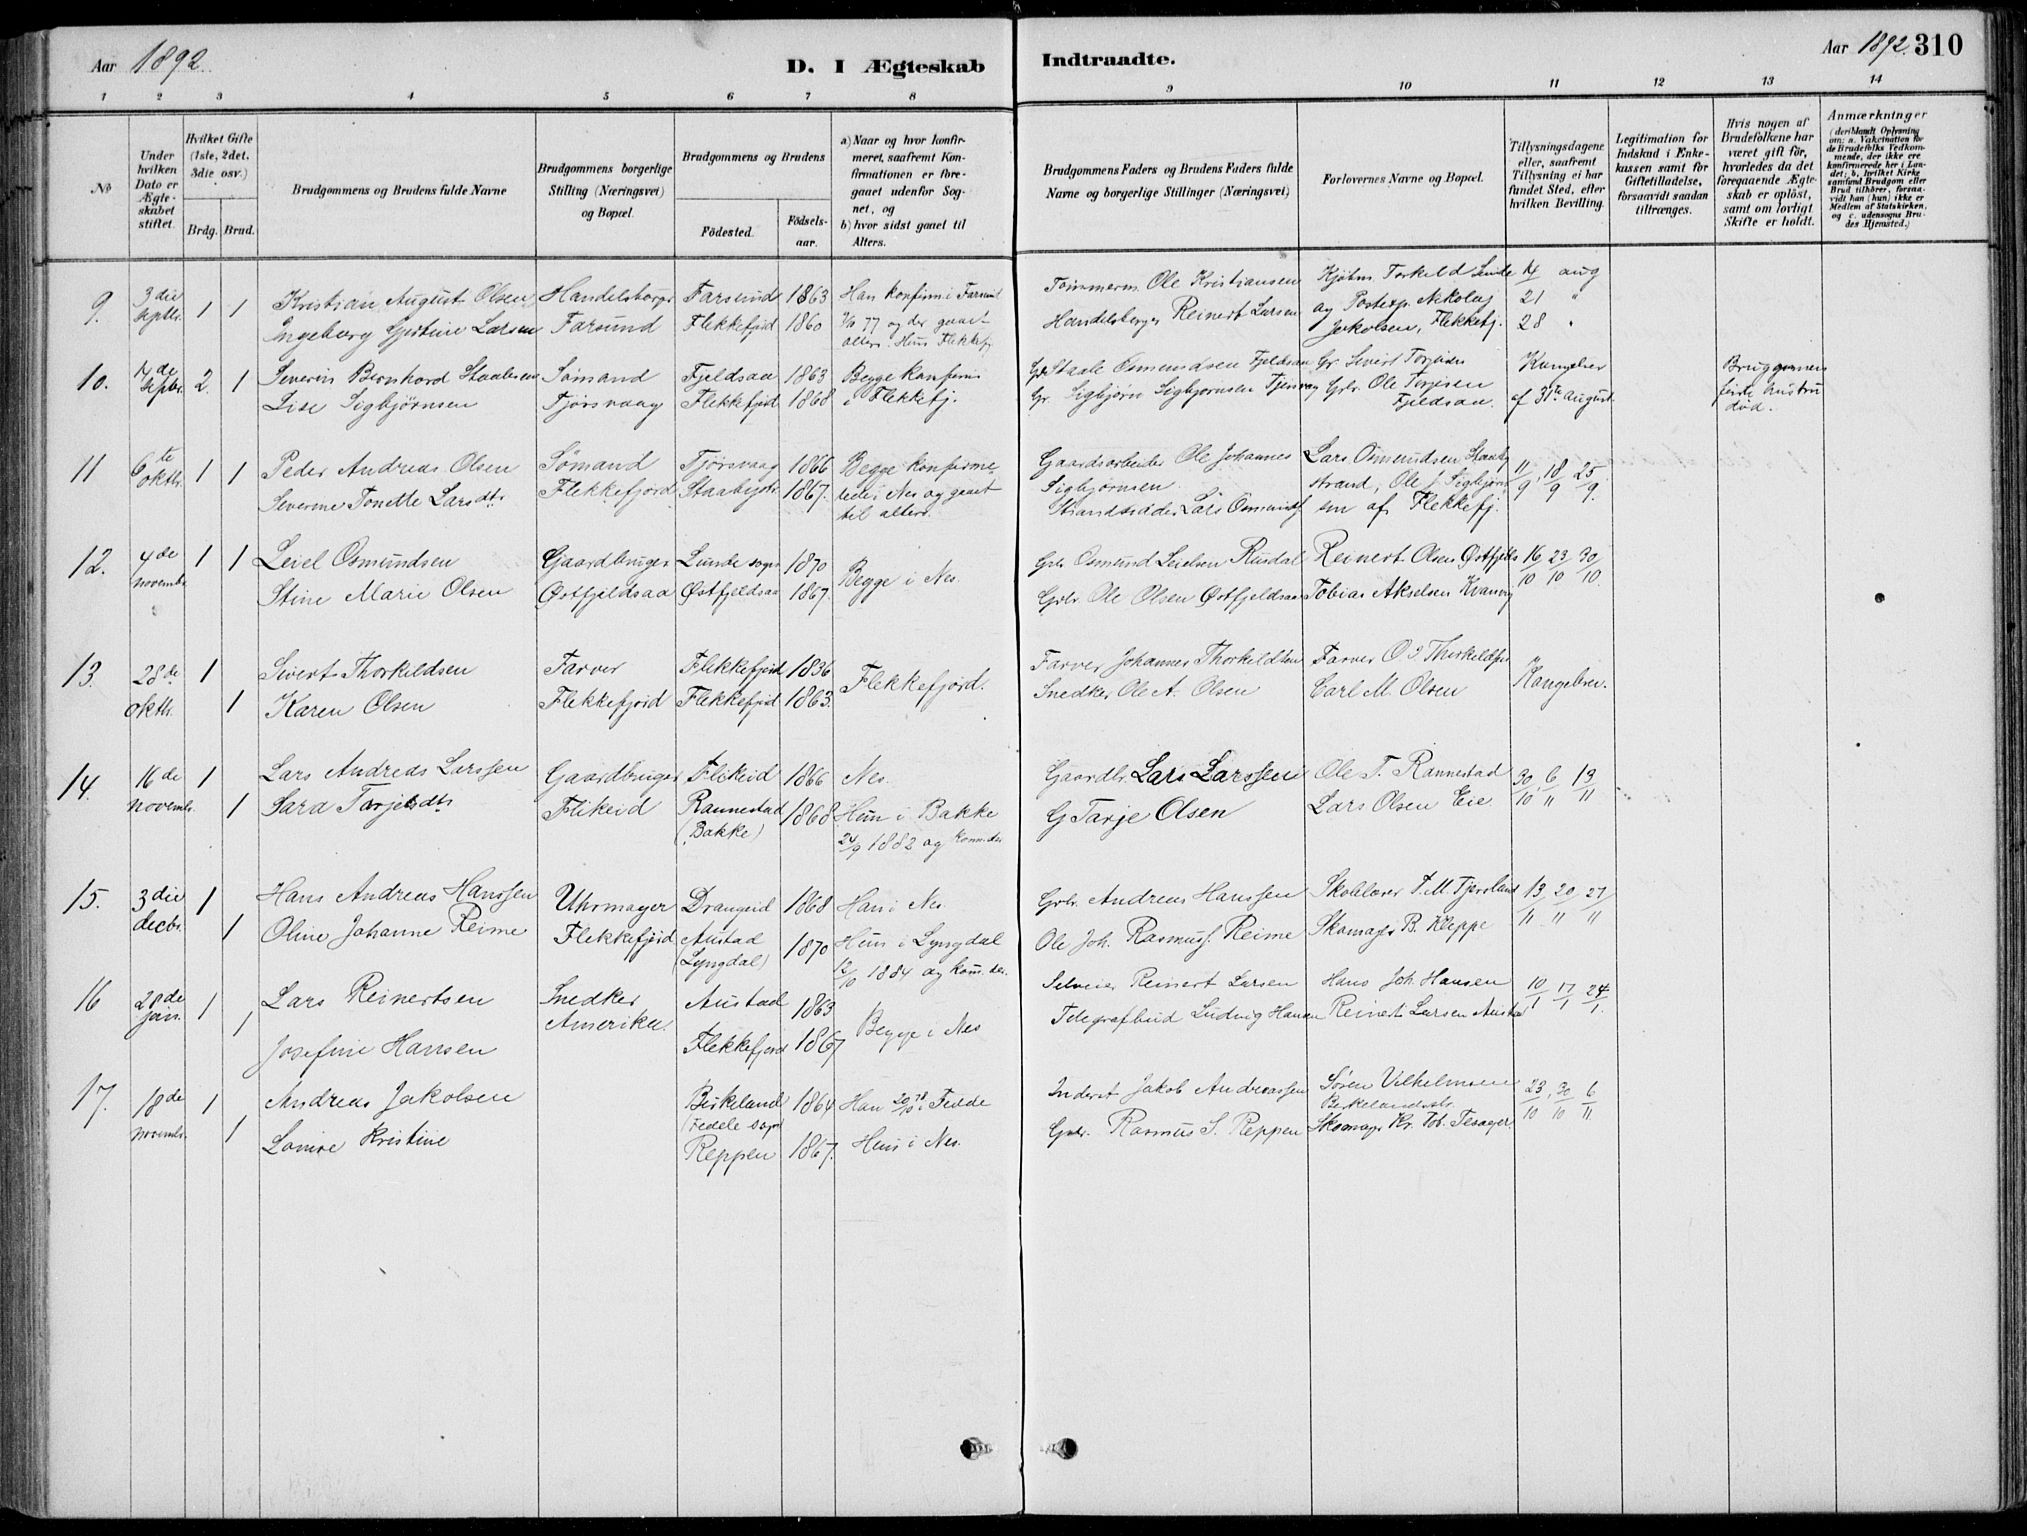 Aar 1892.
D. I Ægteskab Indtraadte.
Aar 1892. 310
1 2 3 4 5 6 7 8 9 10 11 12 13 14
No
Under hvilken Dato er Ægteskabet stiftet.
Hvilket Gifte (1ste, 2det, 3die osv.)
Brdg. Brud.
Brudgommens og Brudens fulde Navne
Brudgommens borgerlige Stilling (Næringsvei) og Bopæl.
Brudgommens og Brudens
Födested. Födsels-aar.
a) Naar og hvor konfirmeret, saafremt Konfirmationen er foregaaet udenfor Sognet, og
b) hvor sidst gaaet til Alters.
Brudgommens Faders og Brudens Faders fulde Navne og borgerlige Stillinger (Næringsvei)
Forlovernes Navne og Bopæl.
Tillysningsdagene eller, saafremt Tillysning ei har fundet Sted, efter hvilken Bevilling.
Legitimation for Indskud i Enkekassen samt for Giftetilladelse, forsaavidt saadan tiltrænges.
Hvis nogen af Brudefolkene har været gift för, hvorledes da det foregaaende Ægteskab er oplöst, samt om lovligt Skifte er holdt.
Anmærkninger
(deriblandt Oplysning om: a. Vakcination for de Brudefolks Vedkommende, der ikke ere konfirmerede her i Landet; b. hvilket Kirkesamfund Brudgom eller Brud tilhörer, forsaavidt han (hun) ikke er Medlem af Statskirken, og c. udensogns Brudes Hjemsted.)
9. 3die septbr. 1 1 Kristian August Olsen Handelsborger Farsund 1863 Han konfirm i Farsund Tømmerm. Ole Kristiansen Kjøbm. Torkeld Sunde 14 aug
Ingeborg Gjertine Larsen Farsund Flekkefjord 1860 7/10 77 og der gaaet Handelsborger Reinert Larsen og Postexp. Nikolay 21 "
alters. Hun Flekkefj. Jakobsen, Flekkefj. 28 "
10. 14de septbr. 2. 1 Severin Bernhard Staalesen Sømand Fjeldsaa 1863 Begge konfirm Gbr Staale Osmundsen Fjeldsaa Gr. Sivert Torjesen Kongebrev Brudgommens
Lise Sigbjørnsen Tjørsvaag Flekkefjord 1868 i Flekkefj. Gr. Sigbjørn Sigbjørnsen Tjørsvaag Gbr. Ole Torjesen Fjeldsaa. af 31te August første hustru død.
11 6te oktbr. 1 1 Peder Andreas Olsen Sømand Tjørsvaag 1866 Begge konfirme Gaardsarbeider Ole Johannes Lars Osmundsen 11/9, 18/9 25/9.
Severine Tonette Larsdtr Flekkefjord 1867. rede i Nes og gaaet Sigbjørnsen strand, Ole J. Sigbjørn
til alters. Strandsidder Lars Osmunds. sen af Flekkefj.
12. 4de novembr 1 1 Leiel Osmundsen Gaardbruger Lunde sogn 1870 Begge i Nes. Gbr Osmund Leielsen Rusdal Reinert Olsen Østfjelds 16/10 23/10 30/10.
Stine Marie Olsen Østfjeldsaa Østfjeldsaa 1867. Gbr. Ole Olsen Østfjeldsaa Tobias Akselsen Kvanvig
13. 28de oktbr. 1 Sivert Thorkeldsen Farver Flekkefjord 1836 Flekkefjord. Farver Johannes Thorkeldsen Farver O J Thorkeldsen Kongebrev.
1 Karen Olsen Flekkefjord Flekkefjord 1863. Snedker Ole A. Olsen Carl M. Olsen
14. 16de novembr. 1 Lars Andreas Larssen Gaardbruger Flikeid 1866 Nes. Gaardbr. Lars Larssen Ole T. Rannestad 30/10, 6/11 13/11
1 Sara Tarjesdtr Flikeid Rannestad 1868 Hun i Bakke G Tarje Olsen Lars Olsen Eie.
(Bakke) 24/9 1882 og kom. der
15. 3die decbr. 1 Hans Andreas Hanssen Uhrmager Drangeid 1868 Han i Nes. Gbr. Andreas Hanssen Skolelærer T. M. Tjørsland 13/11 20/11 27/11
1 Oline Johanne Reime Flekkefjord Austad 1870 Hun i Lyngdal Ole Joh. Rasmuss. Reime Skomager B. Kleppe
(Lyngdal) 12/10 1884 og kom. der.
16 28de jan. 1 Lars Reinertsen Snedker Austad 1863 Begge i Nes Selveier Reinert Larsen Hans Joh. Hansen 10/1 17/1 24/1.
1 Josefine Hansen Amerika. Flekkefjord 1867 Telegrafbud Ludvig Hansen Reinert Larsen Austad
17. 18de novembr. 1 Andreas Jakobsen Birkeland 1864 Han 20/10 78 i Fedde Inderst Jakob Andreassen Søren Vilhelmsen 23/10, 30/10 6/11
(Fedde sogn) Birkelandsstr.
1 Lovise Kristine Reppen 1867. Hun i Nes. Gbr. Rasmus S. Reppen Skomager Kr. Tob. Tesager